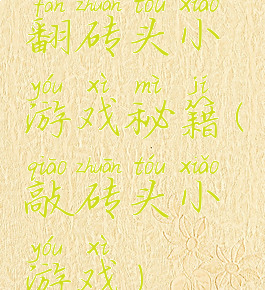 fān zhuān tóu xiǎo
翻砖头小
yóu xì mì jí
游戏秘籍(
qiāo zhuān tóu xiǎo
敲砖头小
yóu xì
游戏)